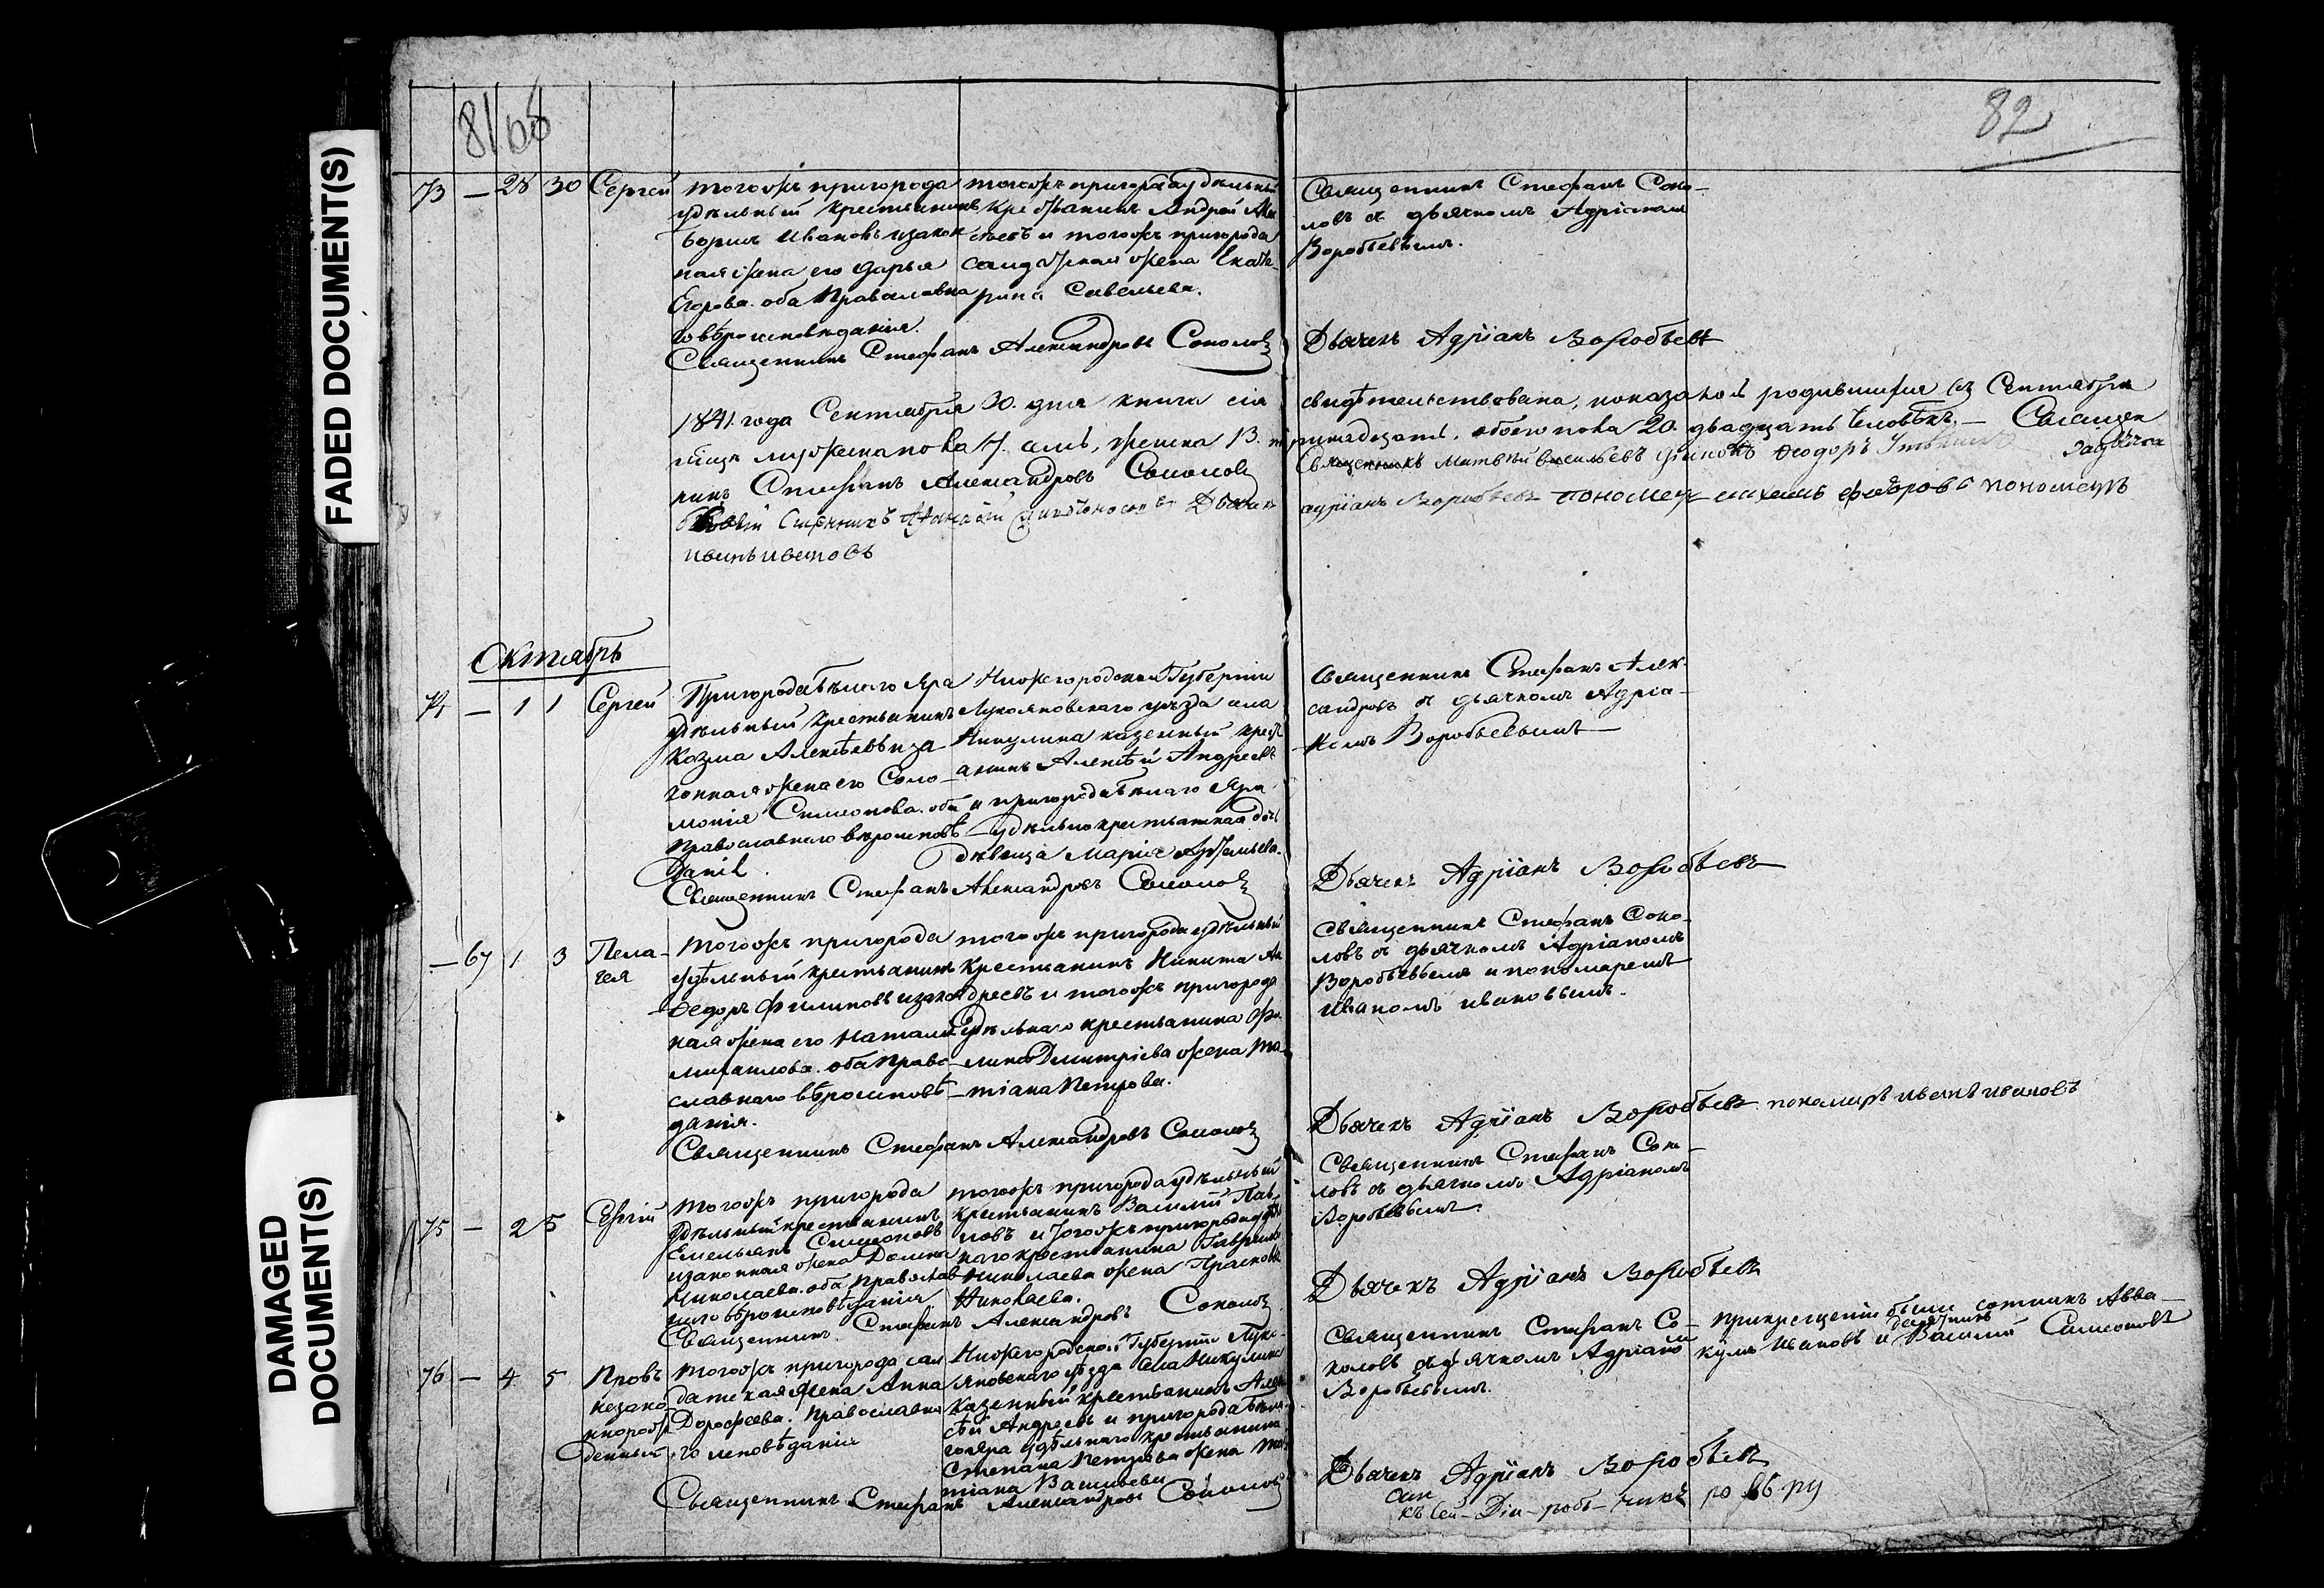 FADED DOCUMENT(S)
DAMAGED DOCUMENT(S)
81 68
82
73 — 28 30 Сергей
тогожъ пригорода
удѣльный крестьянинъ
Борисъ Ивановъ и закон
ная жена его Дарья
Егорова. оба православна
го вѣроисповѣданія.
тогожъ пригорода удѣльный
крестьянинъ Андрей Але
ксѣевъ и тогожъ пригорода
солдатская жена Екате
рина Савельева.
Священникъ Стефанъ Александровъ Соколовъ
Священникъ Стефанъ Соко-
ловъ съ дьячкомъ Адріаномъ
Воробьевымъ.
Дьячекъ Адріанъ Воробьевъ
1841 года Сентября 30. дня книга сія свидѣтельствована, показаной родившихся въ Сентябрѣ
мѣсяцѣ мужеска пола 7. семь, женска 13. тринадцать, обоего пола 20. двадцать человѣкъ. — Священ
никъ Стефанъ Александровъ Соколовъ Священникъ Матвѣй Васильевъ Діаконъ Ѳеодоръ
Дьячекъ Адріанъ Воробьевъ пономарь Федоровъ пономарь
Иванъ Ивановъ
Октябрь
74 — 1 1 Сергей
Пригорода Бѣлаго Яра
удѣльный крестьянинъ
Козма Алексѣевъ и за
конная жена его Соло-
монія Симеонова. оба
православнаго вѣроисповѣ
данія.
Нижегородской Губерніи
Лукояновскаго уѣзда села
Никулина казенный крест
янинъ Алексѣй Андреевъ
и пригорода Бѣлаго Яра
удѣльнокрестьянская дочь
дѣвица Марія Артемьева.
Священникъ Стефанъ Александровъ Соколовъ
Священникъ Стефанъ Алек-
сандровъ съ дьячкомъ Адріа-
номъ Воробьевымъ
Дьячекъ Адріанъ Воробьевъ
— 67 1 3 Пела-
гея
Тогожъ пригорода
удѣльный крестьянинъ
Ѳедоръ Филиповъ и зако
ная жена его Наталія
Михаилова. оба право-
славнаго вѣроисповѣ
данія.
тогожъ пригорода удѣльный
крестьянинъ Никита Ан
дреевъ и тогожъ пригорода
удѣльнаго крестьянина
Дмитріева жена Та-
тіана Петрова.
Священникъ Стефанъ Александровъ Соколовъ
Священникъ Стефанъ Соко-
ловъ съ дьячкомъ Адріаномъ
Воробьевымъ и пономаремъ
Иваномъ Ивановымъ.
Дьячекъ Адріанъ Воробьевъ пономарь Иванъ Ивановъ
75 — 2 5 Сергій
Тогожъ пригорода
удѣльный крестьянинъ
Емельянъ Симеоновъ
и законная жена Домна
Николаева. оба православ
наго вѣроисповѣданія
тогожъ пригорода удѣльный
крестьянинъ Василій Пав-
ловъ и тогожъ пригорода удѣль
наго крестьянина Гавріила
Николаева жена Прасковья
Николаева.
Священникъ Стефанъ Александровъ Соколовъ
Священникъ Стефанъ Соко-
ловъ съ дьячкомъ Адріаномъ
Воробьевымъ.
Дьячекъ Адріанъ Воробьевъ
76 — 4 5 Провъ
незако
ннорож
денный
Тогожъ пригорода сол
датская жена Анна
Дорофеева. православна
го исповѣданія
Нижегородской Губерніи Луко-
яновскаго уѣзда села Никулина
казенный крестьянинъ Алек
сѣй Андреевъ и пригорода Бѣла
го Яра удѣльнаго крестьянина
Степана Петрова жена Та
тіана Васильева
Священникъ Стефанъ Александровъ Соколовъ
Священникъ Стефанъ Со-
коловъ съ дьячкомъ Адріаном
Воробьевымъ.
при крещеніи были сотникъ Авва-
кумъ Ивановъ и десятникъ Василій Симеоновъ
Дьячекъ Адріанъ Воробьевъ